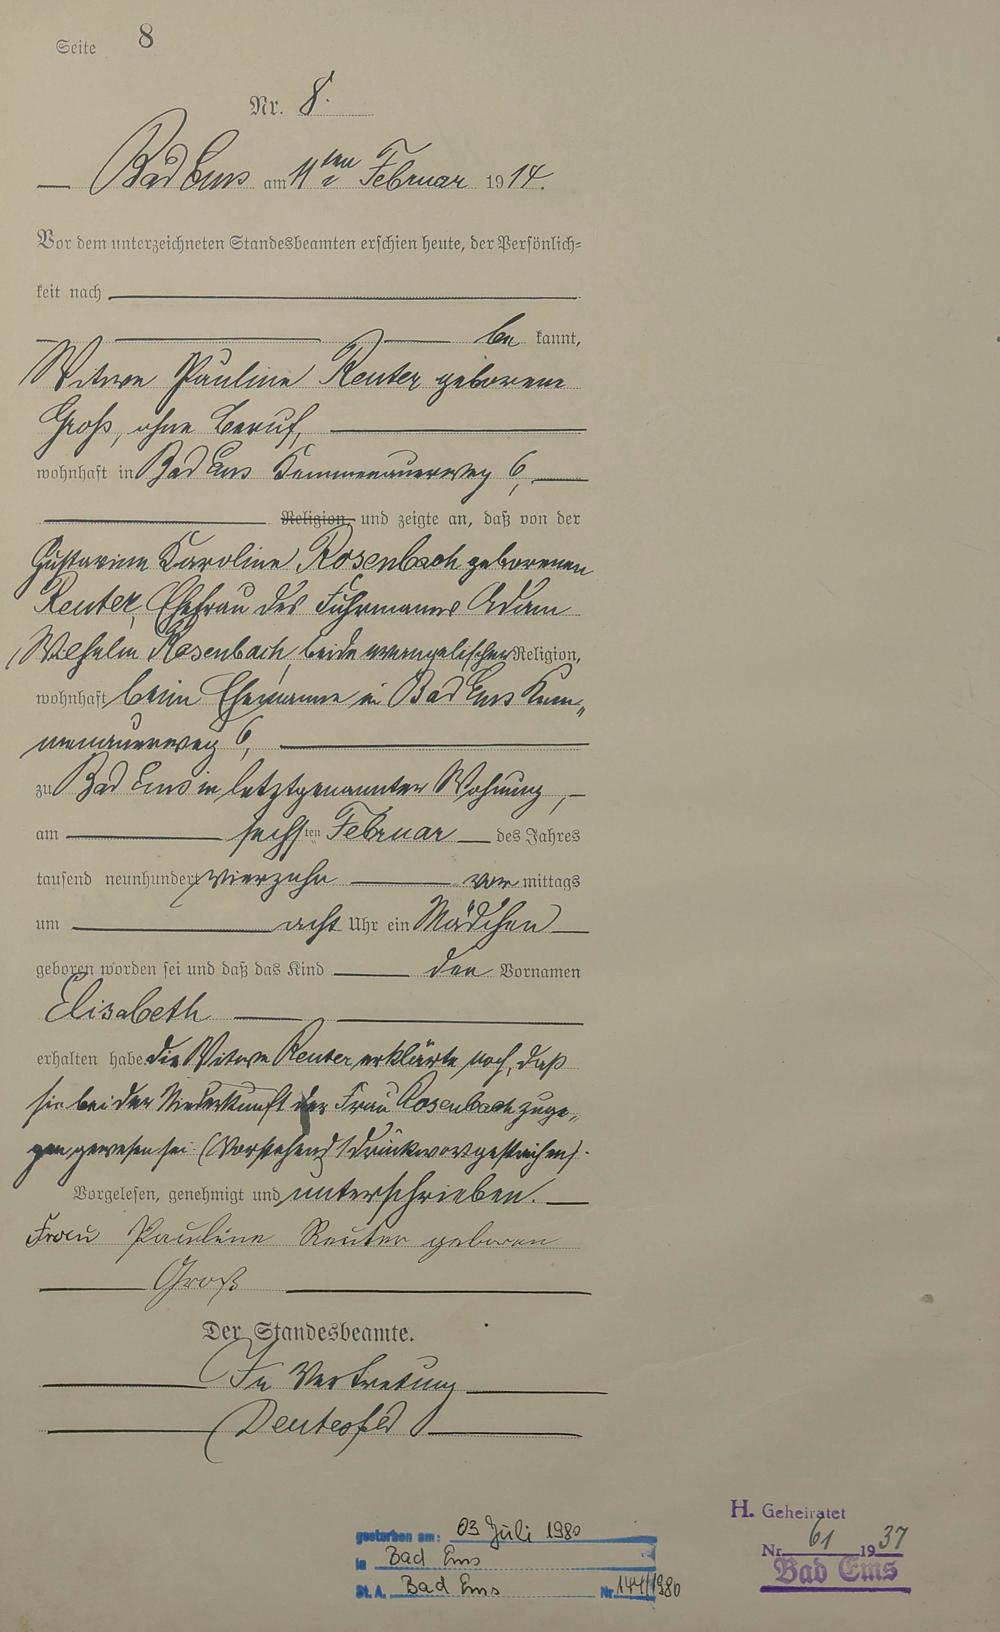 Seite 8
Nr. 8.
Bad Ems am 11ten Februar 1914.
Vor dem unterzeichneten Standesbeamten erschien heute, der Persönlich=
keit nach
be kannt,
Witwe Pauline Reuter geborene
Groß, ohne Beruf,
wohnhaft in Bad Ems Kemmenauerweg 6,
Religion, und zeigte an, daß von der
Karoline Rosenbach geborenen
Reuter, Ehefrau des Fuhrmanns Adam
Wilhelm Rosenbach, beide evangelischer Religion,
wohnhaft beim Ehemanne in Bad Ems Kem„
menauerweg 6,
zu Bad Ems in letztgenannter Wohnung,
am sechsten Februar des Jahres
tausend neunhundert vierzehn vor mittags
um acht Uhr ein Mädchen
geboren worden sei und daß das Kind den Vornamen
Elisabeth
erhalten habe. die Witwe Reuter erklärte noch, daß
sie bei der Niederkunft der Frau Rosenbach zuge„
gen gewesen sei. (Vorstehend 1 Druckwort gestrichen).
Vorgelesen, genehmigt und unterschrieben.
Frau Pauline Reuter geboren
Groß
Der Standesbeamte.
In Vertretung
gestorben am: 03 Juli 1980
in Bad Ems
St. A. Bad Ems Nr. 144/1980
H. Geheiratet
Nr. 61 1937
Bad Ems